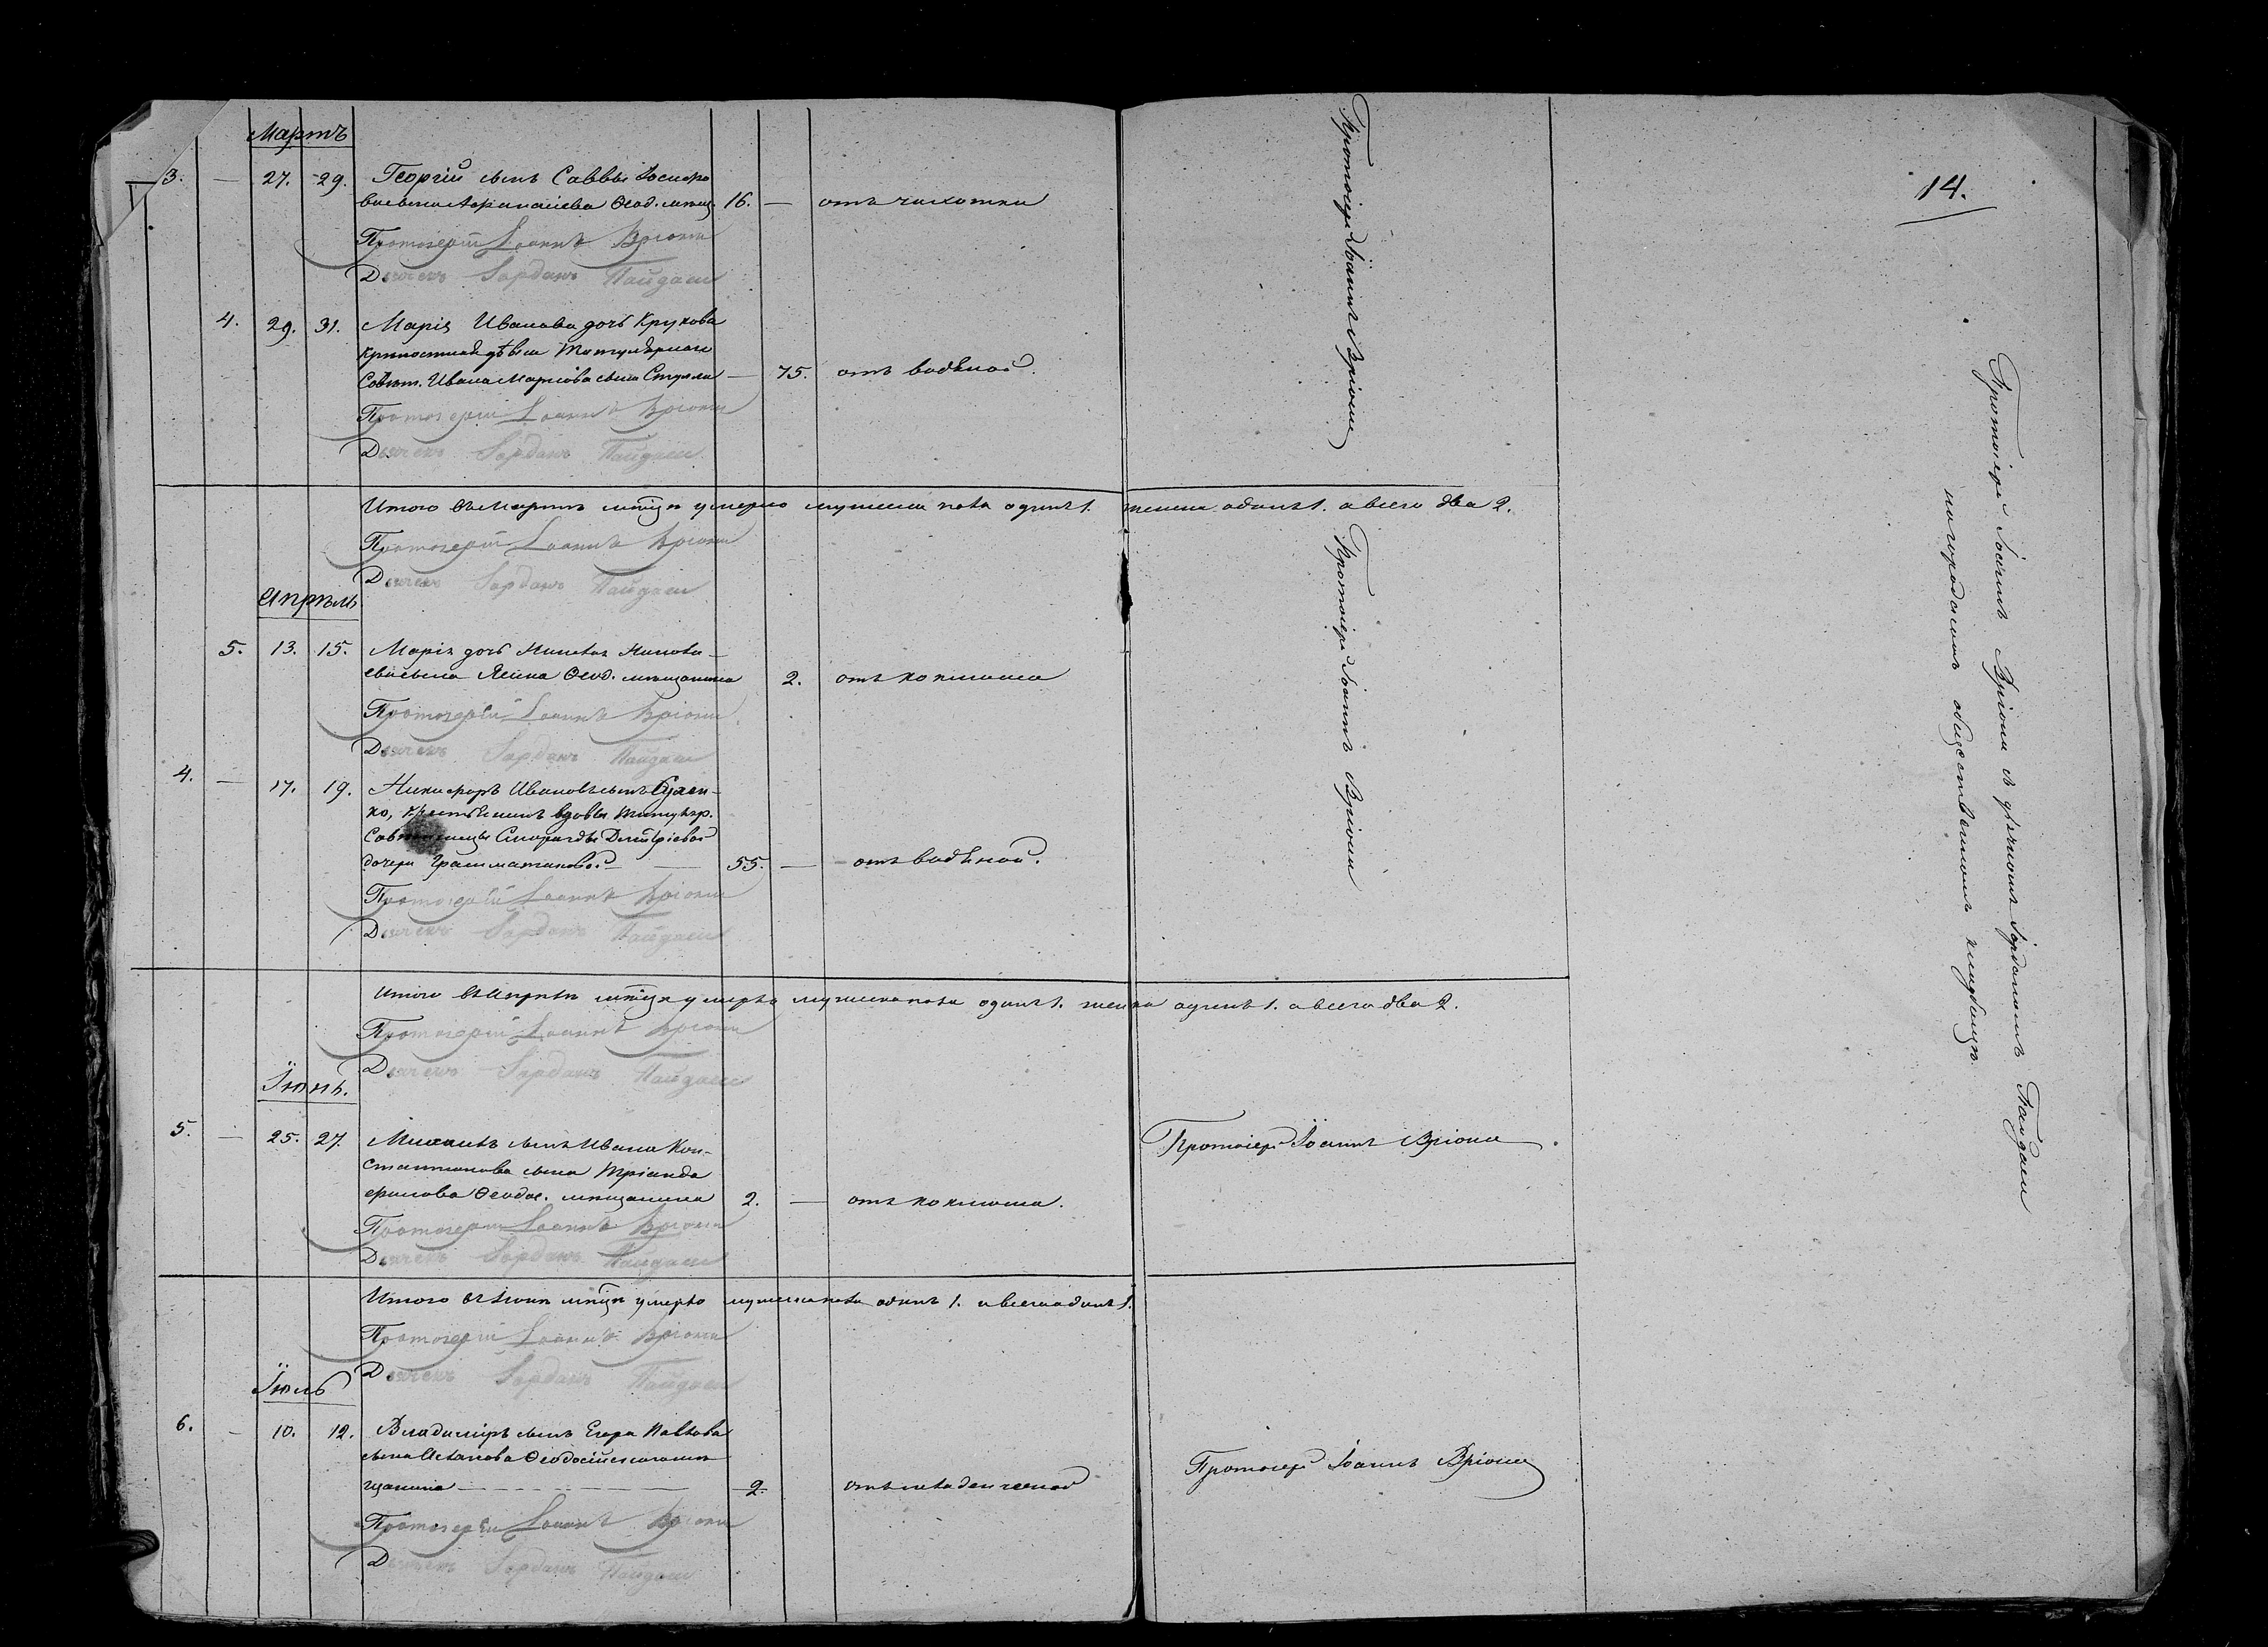 Мартъ
3. — 27. 29. Георгій сынъ Саввы
Ѳеод. мѣщ. 16. — отъ чахотки
Протоіерей Іоаннъ Вріони
Дьячекъ Іорданъ Пайдаси
4. 29. 31. Марія Иванова дочь Крукова
крѣпостная дѣвка Титулярнаго
Совѣт. Ивана Маркова сына — 75. отъ водяной.
Протоіерей Іоаннъ Вріони
Дьячекъ Іорданъ Пайдаси
Итого въ Мартѣ мѣсяцѣ умерло мужеска пола одинъ 1. женска одинъ 1. а всего два 2.
Протоіерей Іоаннъ Вріони
Дьячекъ Іорданъ Пайдаси
Апрѣль
5. 13. 15. Марія дочь
Ѳеод. мѣщанина 2. отъ коклюша
Протоіерей Іоаннъ Вріони
Дьячекъ Іорданъ Пайдаси
4. — 17. 19. Никифоръ Ивановъ сынъ
ко, вдовы Титуляр.
Смарагды Дмитріевой
дочери Грамматиковой — 55. — отъ водяной.
Протоіерей Іоаннъ Вріони
Дьячекъ Іорданъ Пайдаси
Итого въ Апрѣлѣ мѣсяцѣ умерло мужеска пола одинъ 1. женска одинъ 1. а всего два 2.
Протоіерей Іоаннъ Вріони
Дьячекъ Іорданъ Пайдаси
Іюнь.
5. — 25. 27. Михаилъ сынъ Ивана Кон-
стантинова сына Тріанда
филова Ѳеодос. мѣщанина 2. — отъ коклюша.
Протоіерей Іоаннъ Вріони
Дьячекъ Іорданъ Пайдаси
Итого въ Іюнѣ мѣсяцѣ умерло мужеска пола одинъ 1. а всего одинъ 1.
Протоіерей Іоаннъ Вріони
Дьячекъ Іорданъ Пайдаси
Іюль
6. — 10. 12. Владиміръ сынъ Егора Павлова
сына Ѳеодосійскаго мѣ
щанина — 2. отъ младенческой
Протоіерей Іоаннъ Вріони
Дьячекъ Іорданъ Пайдаси
Протоіерей Іоаннъ Вріони
Протоіерей Іоаннъ Вріони
Протоіерей Іоаннъ Вріони
Протоіерей Іоаннъ Вріони
14.
Протоіерей Іоаннъ Вріони съ дьячкомъ Іорданомъ Пайдаси
на городскомъ общественномъ кладбищѣ